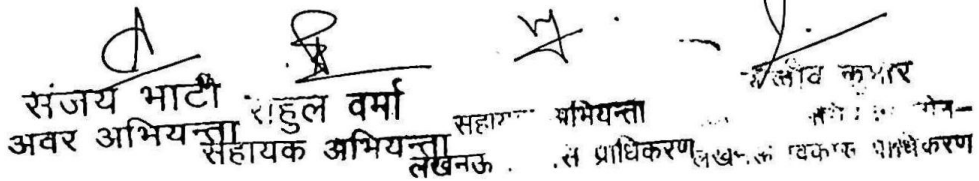 संजय भाटी
अवर अभियन्ता
राहुल वर्मा
सहायक अभियन्ता
अभियन्ता
लखनऊ
प्राधिकरण
कुमार
लखनऊ विकास प्राधिकरण